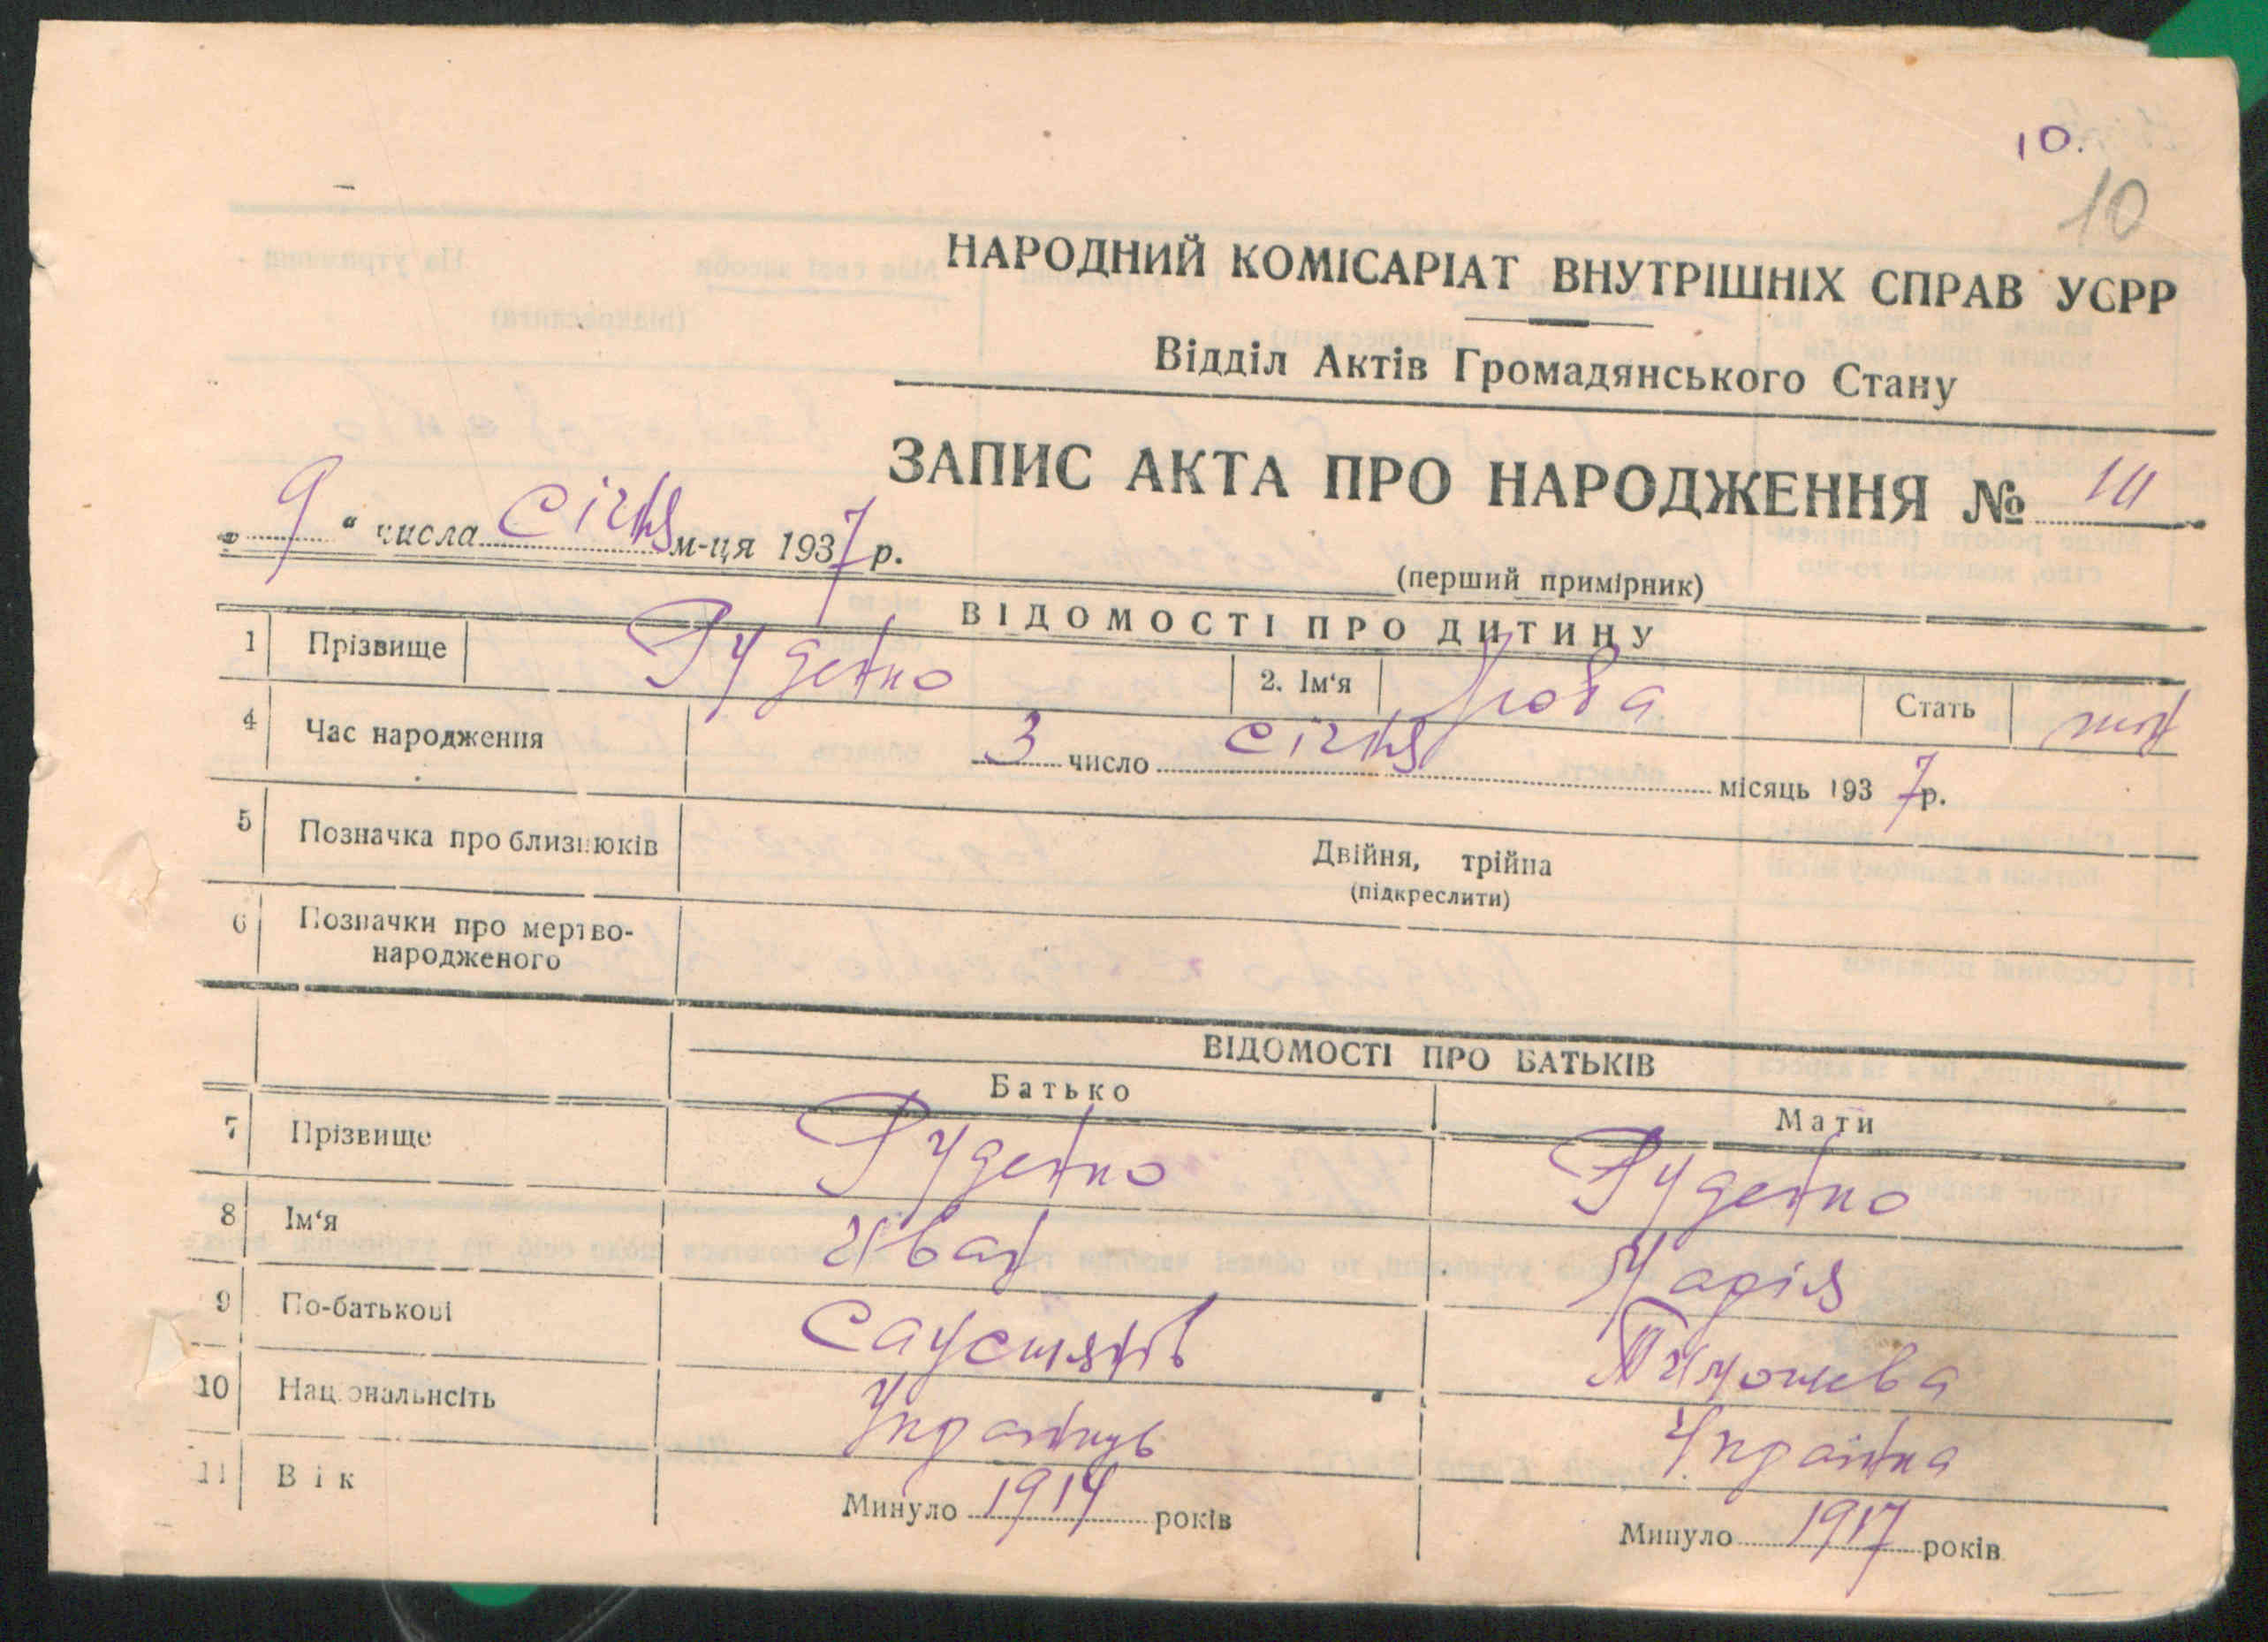 10.
10
НАРОДНИЙ КОМІСАРІАТ ВНУТРІШНІХ СПРАВ УСРР
Відділ Актів Громадянського Стану
ЗАПИС АКТА ПРО НАРОДЖЕННЯ №
„ 9 “ числа січня м-ця 1937 р.
(перший примірник)
ВІДОМОСТІ ПРО ДИТИНУ
1 Прізвище Руденко 2. Ім'я Стать
4 Час народження 3 число січня місяць 1937 р.
5 Позначка про близнюків Двійня, трійня
(підкреслити)
6 Позначки про мертво-
народженого
ВІДОМОСТІ ПРО БАТЬКІВ
Батько Мати
7 Прізвище Руденко Руденко
8 Ім'я Иван Марія
9 По-батькові
10 Національнсіть Українць Українка
11 Вік Минуло 1914 років Минуло 1917 років